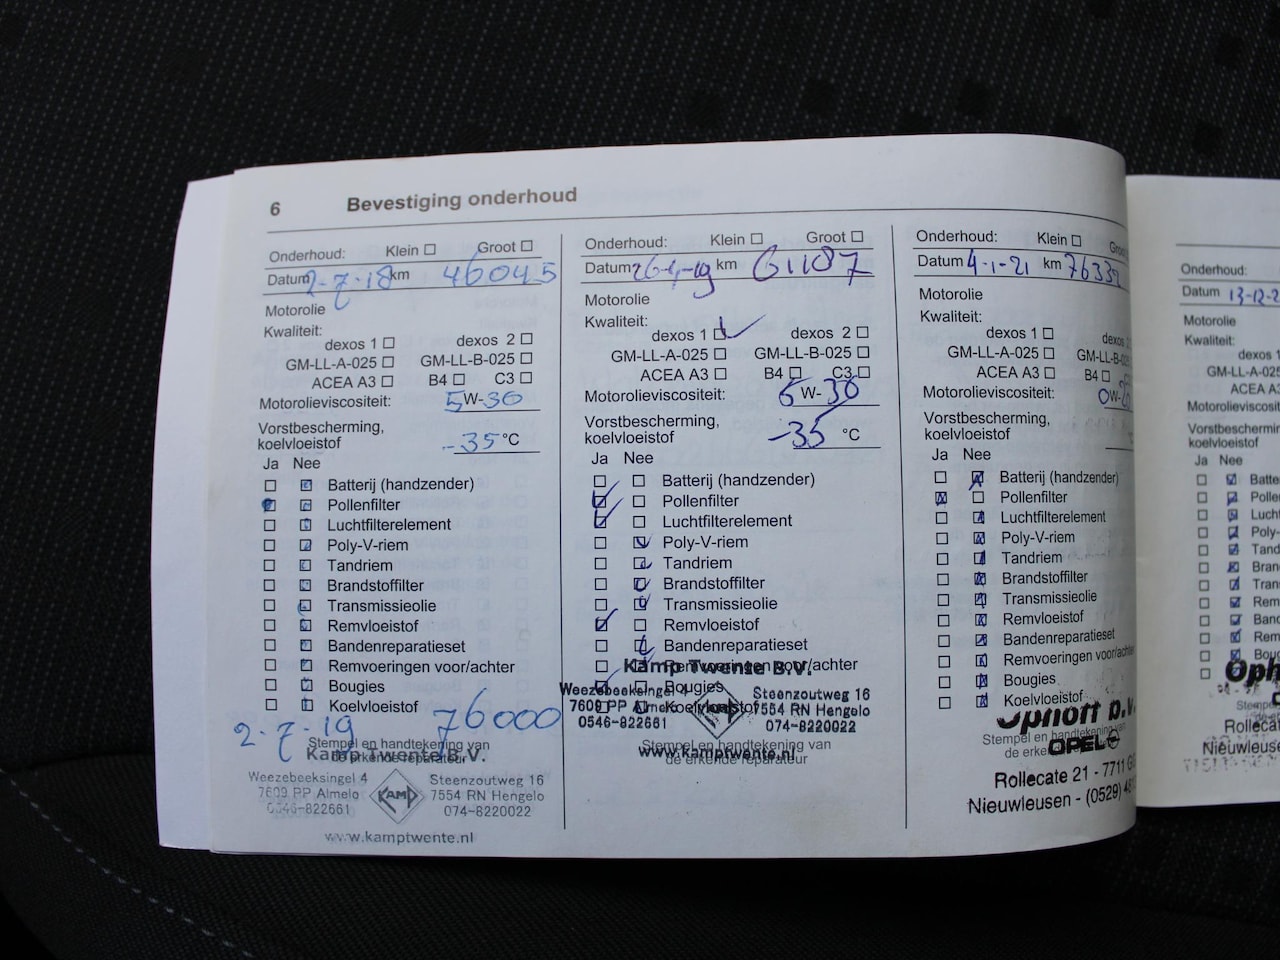 6 Bevestiging onderhoud
Onderhoud: Klein Groot
Datum 2-7-18 km 46045
Motorolie
Kwaliteit:
dexos 1 dexos 2
GM-LL-A-025 GM-LL-B-025
ACEA A3 B4 C3
Motorolieviscositeit: 5W-30
Vorstbescherming,
koelvloeistof -35 °C
Ja Nee
Batterij (handzender)
Pollenfilter
Luchtfilterelement
Poly-V-riem
Tandriem
Brandstoffilter
Transmissieolie
Remvloeistof
Bandenreparatieset
Remvoeringen voor/achter
Bougies
Koelvloeistof
2-7-19 76000
Stempel en handtekening van
de erkende reparateur
Kamp Twente B.V.
Weezebeeksingel 4 Steenzoutweg 16
7609 PP Almelo KAMP 7554 RN Hengelo
0546-822661 074-8220022
www.kamptwente.nl
Onderhoud: Klein Groot
Datum 26-4-19 km 61187
Motorolie
Kwaliteit:
dexos 1 dexos 2
GM-LL-A-025 GM-LL-B-025
ACEA A3 B4 C3
Motorolieviscositeit: 5W-30
Vorstbescherming,
koelvloeistof -35 °C
Ja Nee
Batterij (handzender)
Pollenfilter
Luchtfilterelement
Poly-V-riem
Tandriem
Brandstoffilter
Transmissieolie
Remvloeistof
Bandenreparatieset
Remvoeringen voor/achter
Bougies
Koelvloeistof
Kamp Twente B.V.
Weezebeeksingel 4 Steenzoutweg 16
7609 PP Almelo 7554 RN Hengelo
0546-822661 074-8220022
Stempel en handtekening van
de erkende reparateur
www.kamptwente.nl
Onderhoud: Klein Groot
Datum 4-1-21 km 76339
Motorolie
Kwaliteit:
dexos 1 dexos
GM-LL-A-025 GM-LL-B-025
ACEA A3 B4
Motorolieviscositeit: 0W-20
Vorstbescherming,
koelvloeistof
Ja Nee
Batterij (handzender)
Pollenfilter
Luchtfilterelement
Poly-V-riem
Tandriem
Brandstoffilter
Transmissieolie
Remvloeistof
Bandenreparatieset
Remvoeringen voor/achter
Bougies
Koelvloeistof
Ophoff b.v.
Stempel en handtekening van
de erkende
OPEL
Rollecate 21 - 7711 G
Nieuwleusen - (0529) 48
Onderhoud:
Datum 13-12-2
Motorolie
Kwaliteit:
dexos 1
GM-LL-A-025
ACEA A3
Motorolieviscosit
Vorstbeschermin
koelvloeistof
Ja Nee
Batte
Polle
Lucht
Poly-
Tand
Bran
Tran
Rem
Band
Rem
Boug
Oph
Stempe
de e
Rollecat
Nieuwleuse